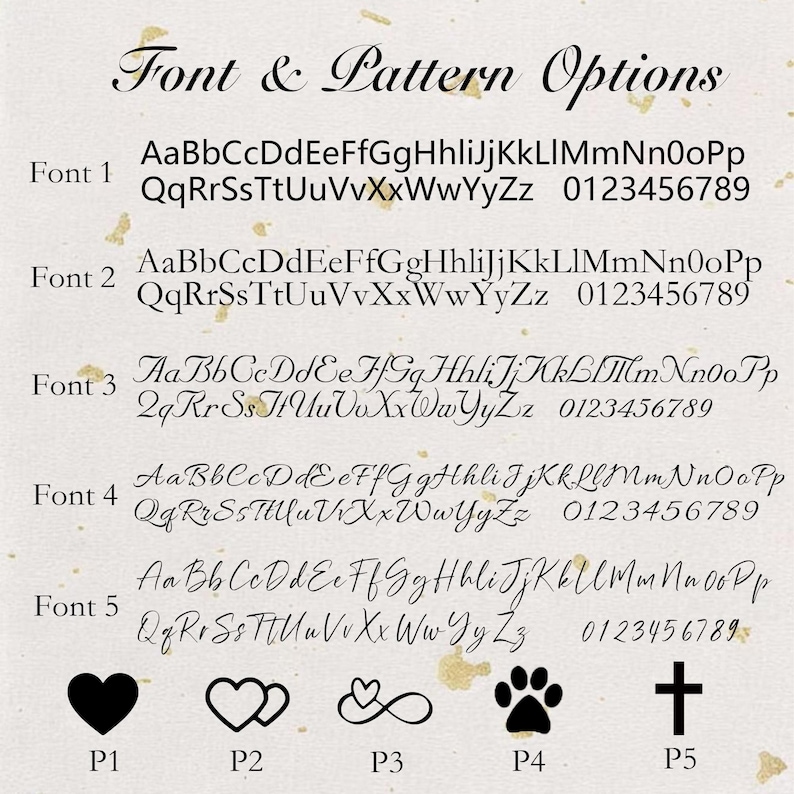 Font & Pattern Options
Font 1
AaBbCcDdEeFfGgHhliJjKkLlMmNn0oPp
QqRrSsTtUuVvXxWwYyZz 0123456789
Font 2
AaBbCcDdEeFfGgHhliJjKkLlMmNn0oPp
QqRrSsTtUuVvXxWwYyZz 0123456789
Font 3
AaBbCcDdEeFfGgHhliJjKkLlMmNn0oPp
QqRrSsTtUuVvXxWwYyZz 0123456789
Font 4
AaBbCcDdEeFfGgHhliJjKkLlMmNn0oPp
QqRrSsTtUuVvXxWwYyZz 0123456789
Font 5
AaBbCcDdEeFfGgHhliJjKkLlMmNn0oPp
QqRrSsTtUuVvXxWwYyZz 0123456789
P1 P2 P3 P4 P5